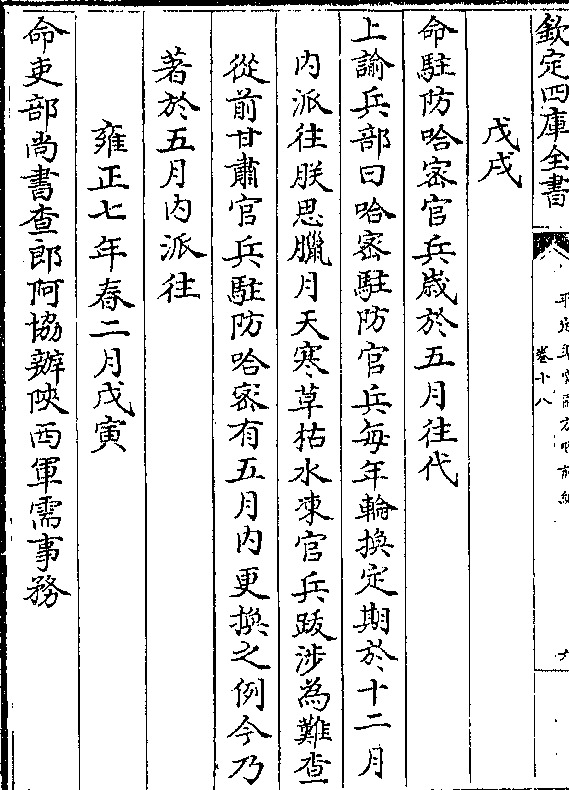 欽定四庫全書
卷十八
戊戌
命駐防哈宻官兵嵗於五月往代
上諭兵部曰哈宻駐防官兵每年輪換定期於十二月
内派往朕思臘月天寒草枯水凍官兵跋涉為難查
從前甘肅官兵駐防哈宻有五月内更換之例今乃
著於五月内派往
雍正七年春二月戊寅
命吏部尚書查郎阿協辦陜西軍需事務